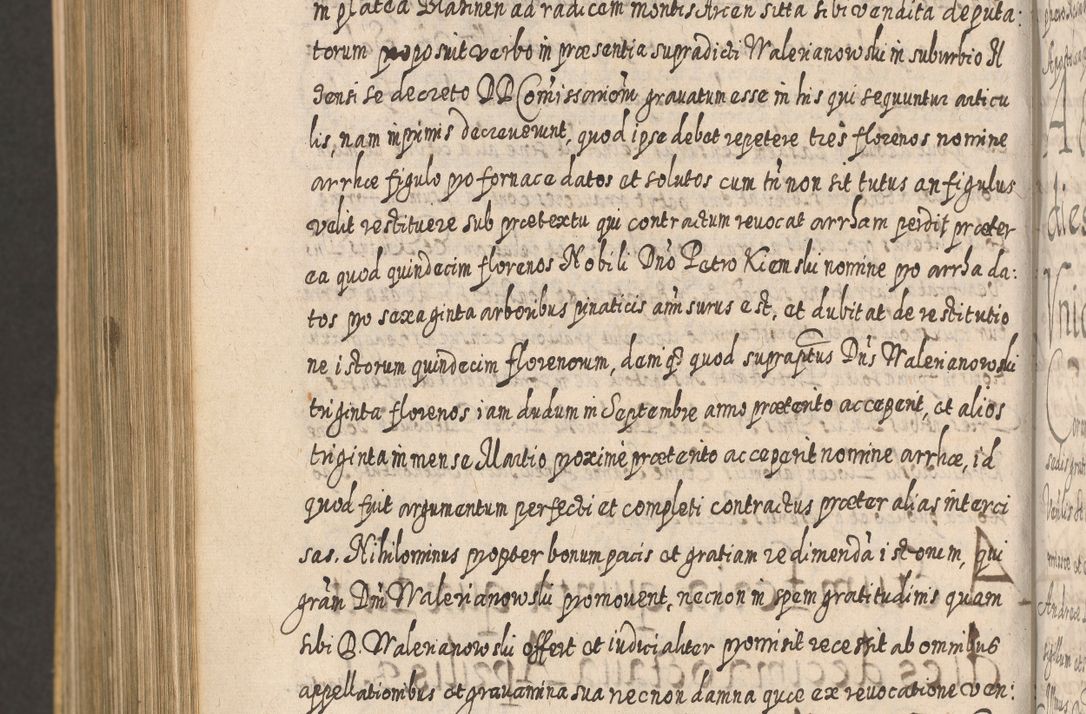 in platea Blasinen ad radicem montis Arcen sitta sibi vendita deputa:
torum proposuit verbo in præsentia supradicti Walerianowski in suburbio Il
densi se decreto DD Com̃issariom̃ gravatum esse in his qui sequuntur articu
lis, nam inprimis decreverunt, quod ipse debet repetere tres florenos nomine
arrhæ figulo pro fornace datos et solutos cum tñ non sit tutus an figulus
velit restituere sub prætextu qui contractum revocat arrham perdit præter
ea quod quindecim florenos Nobili Dño Petro Kiemski nomine pro arrha da:
tos pro sexaginta arboribus pinaticis am̃surus est, et dubitat de restitutio
ne istorum quindecim florenorum, demq3 quod supraptus Dñs Walerianowski
triginta florenos iam dudum in Septembre anno præterito acceperit, et alios
triginta in mense Martio proxime præterito acceperit nomine arrhæ, id
quod fuit argumentum perfecti et completi contractus præter alias interci
sas. Nihilominus propter bonum pacis et gratiam redimendã istonem, qui
grãm Dñi Walerianowski promovent, necnon in spem gratitudinis quam
sibi D. Walerianowski offert et iudicialiter promisit recessit ab omnibus
appellationibus et gravamina sua necnon damna quæ ex revocatione ven: